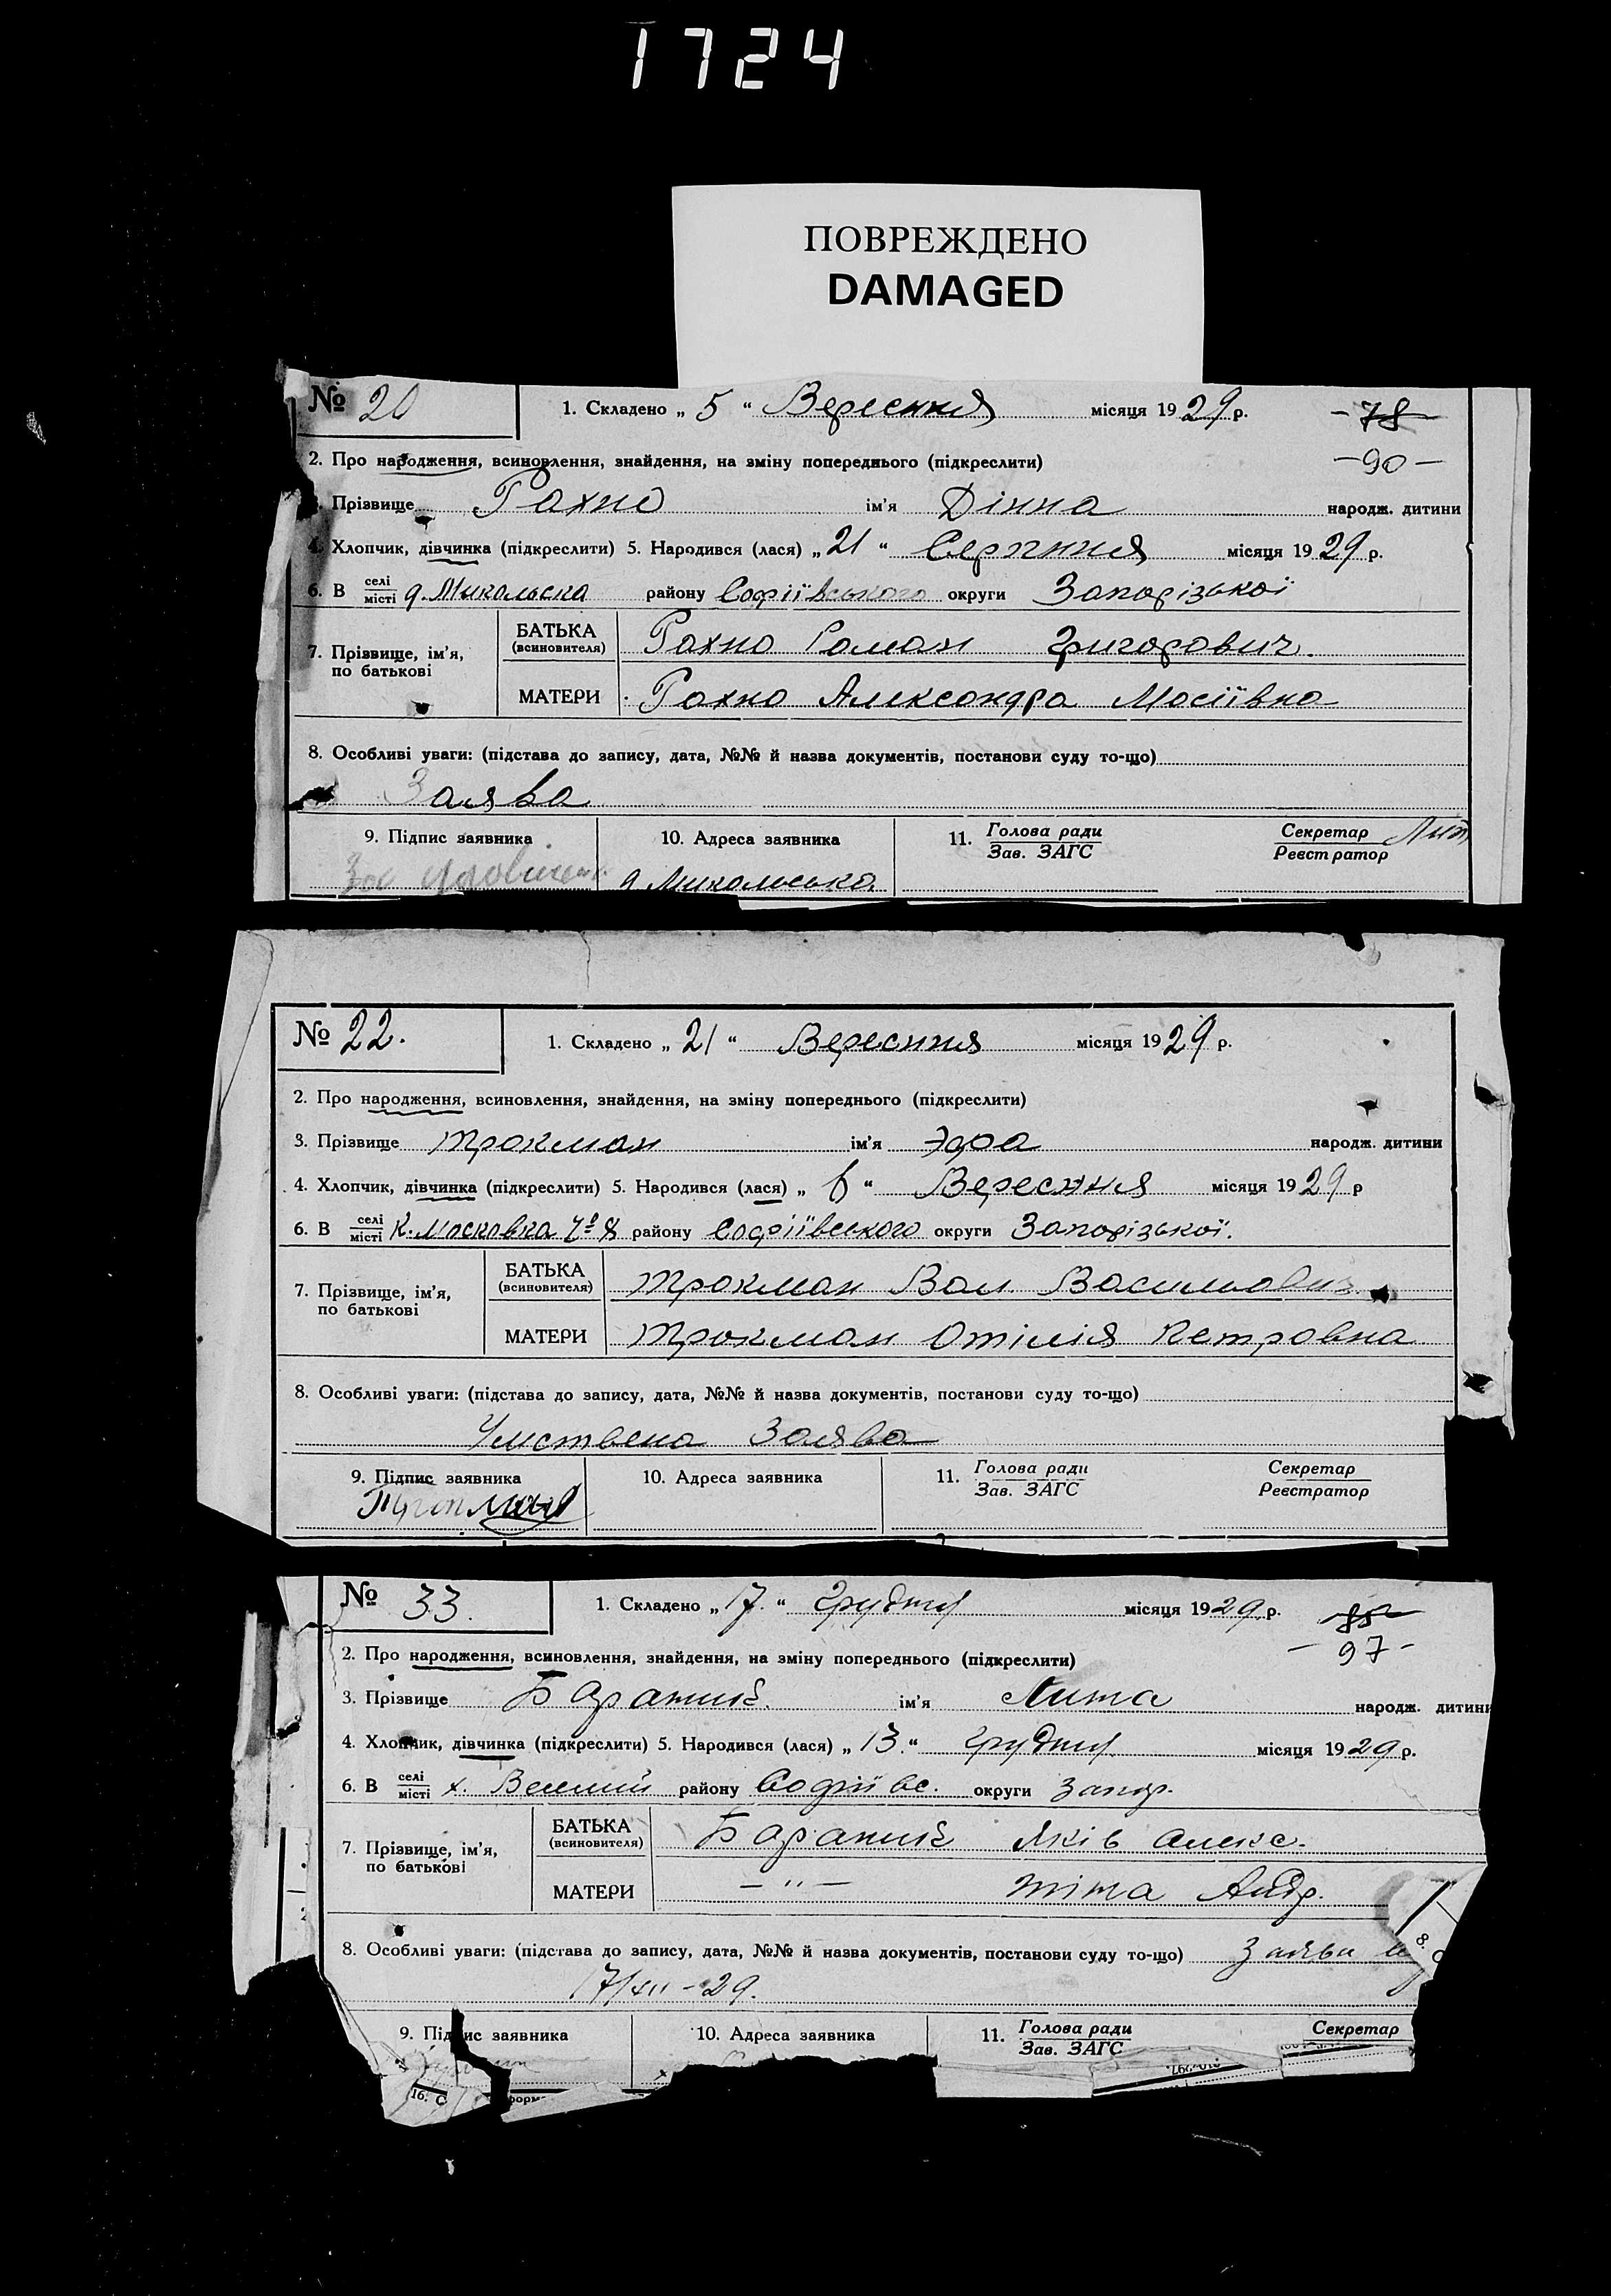 1724
ПОВРЕЖДЕНО
DAMAGED
№ 20 1. Складено „ 5 “ Вересння місяця 1929 р. - 78 -
2. Про народження, всиновлення, знайдення, на зміну попереднього (підкреслити) - 90 -
Прізвище Рахно ім’я Дінна народж. дитини
4. Хлопчик, дівчинка (підкреслити) 5. Народився (лася) „ 21 “ Серпння місяця 1929 р.
6. В селі/місті д. Микольска району Софіївського округи Запорізької
7. Прізвище, ім’я, по батькові
БАТЬКА (всиновителя) Рахно Роман Григорович.
МАТЕРИ Рахно Александра Мосіївна
8. Особливі уваги: (підстава до запису, дата, №№ й назва документів, постанови суду то-що)
Заява
9. Підпис заявника 10. Адреса заявника 11. Голова ради/Зав. ЗАГС Секретар/Реєстратор
За д Микольська
№ 22. 1. Складено „ 21 “ Вересння місяця 1929 р.
2. Про народження, всиновлення, знайдення, на зміну попереднього (підкреслити)
3. Прізвище Трокман ім’я Эдра народж. дитини
4. Хлопчик, дівчинка (підкреслити) 5. Народився (лася) „ “ Вересння місяця 1929 р
6. В селі/місті К. Московка району Софіївського округи Запорізької.
7. Прізвище, ім’я, по батькові
БАТЬКА (всиновителя) Трокман Вал. Васильович
МАТЕРИ Трокман Отілія Петровна
8. Особливі уваги: (підстава до запису, дата, №№ й назва документів, постанови суду то-що)
Заява
9. Підпис заявника 10. Адреса заявника 11. Голова ради/Зав. ЗАГС Секретар/Реєстратор
Трокман
№ 33. 1. Складено „ 17. “ Грудня місяця 1929 р. 85
2. Про народження, всиновлення, знайдення, на зміну попереднього (підкреслити) - 97 -
3. Прізвище Бараник. ім’я народж. дитини
4. Хлопчик, дівчинка (підкреслити) 5. Народився (лася) „ 13. “ Грудня місяця 1929 р.
6. В селі/місті х. Веселий району Софіївс. округи Запор.
7. Прізвище, ім’я, по батькові
БАТЬКА (всиновителя) Бараник Яків Алекс.
МАТЕРИ - " - Андр.
8. Особливі уваги: (підстава до запису, дата, №№ й назва документів, постанови суду то-що) Заява
17/XII - 29.
9. Підпис заявника 10. Адреса заявника 11. Голова ради/Зав. ЗАГС Секретар
16. С форм